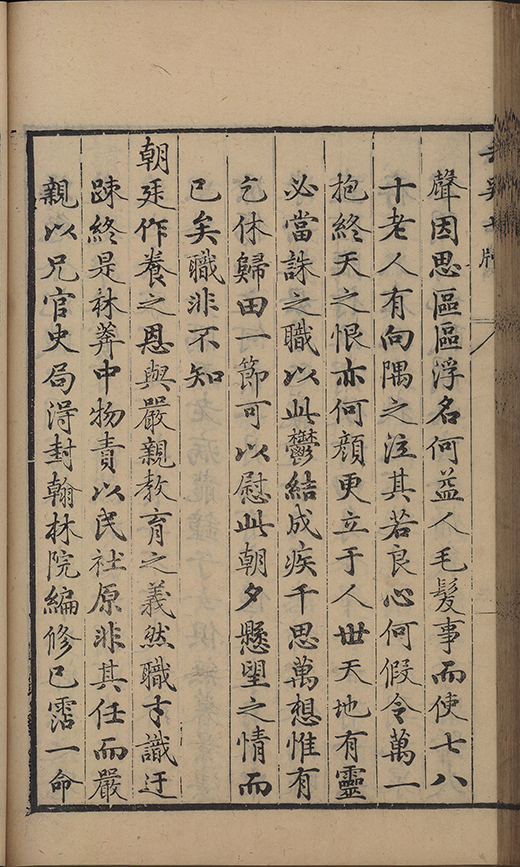 聲因思區區浮名何益人毛髮事而使七八
十老人有向隅之泣其若良心何假令萬一
抱終天之恨亦何顔更立于人世天地有靈
必當誅之職以此鬱結成疾千思萬想惟有
乞休歸田一節可以慰此朝夕懸望之情而
已矣職非不知
朝廷作養之恩與嚴親教育之義然職才識迂
踈終是林莽中物責以民社原非其任而嚴
親以兄官史局淂封翰林院編修已霑一命